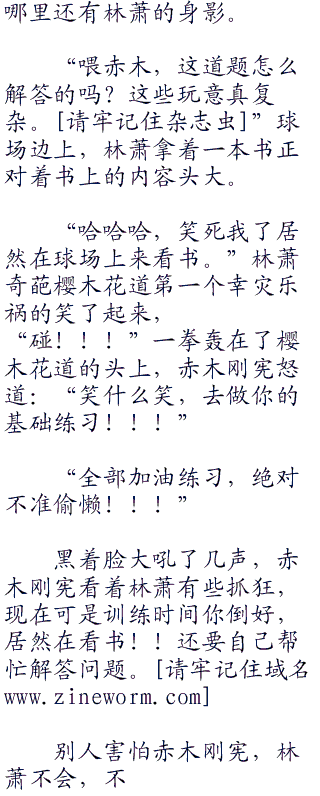 哪里还有林萧的身影。
“喂赤木，这道题怎么
解答的吗？这些玩意真复
杂。[请牢记住杂志虫]”球
场边上，林萧拿着一本书正
对着书上的内容头大。
“哈哈哈，笑死我了居
然在球场上来看书。”林萧
奇葩樱木花道第一个幸灾乐
祸的笑了起来，
“碰！！！”一拳轰在了樱
木花道的头上，赤木刚宪怒
道：“笑什么笑，去做你的
基础练习！！！”
“全部加油练习，绝对
不准偷懒！！！”
黑着脸大吼了几声，赤
木刚宪看着林萧有些抓狂，
现在可是训练时间你倒好，
居然在看书！！还要自己帮
忙解答问题。[请牢记住域名
www.zineworm.com]
别人害怕赤木刚宪，林
萧不会，不